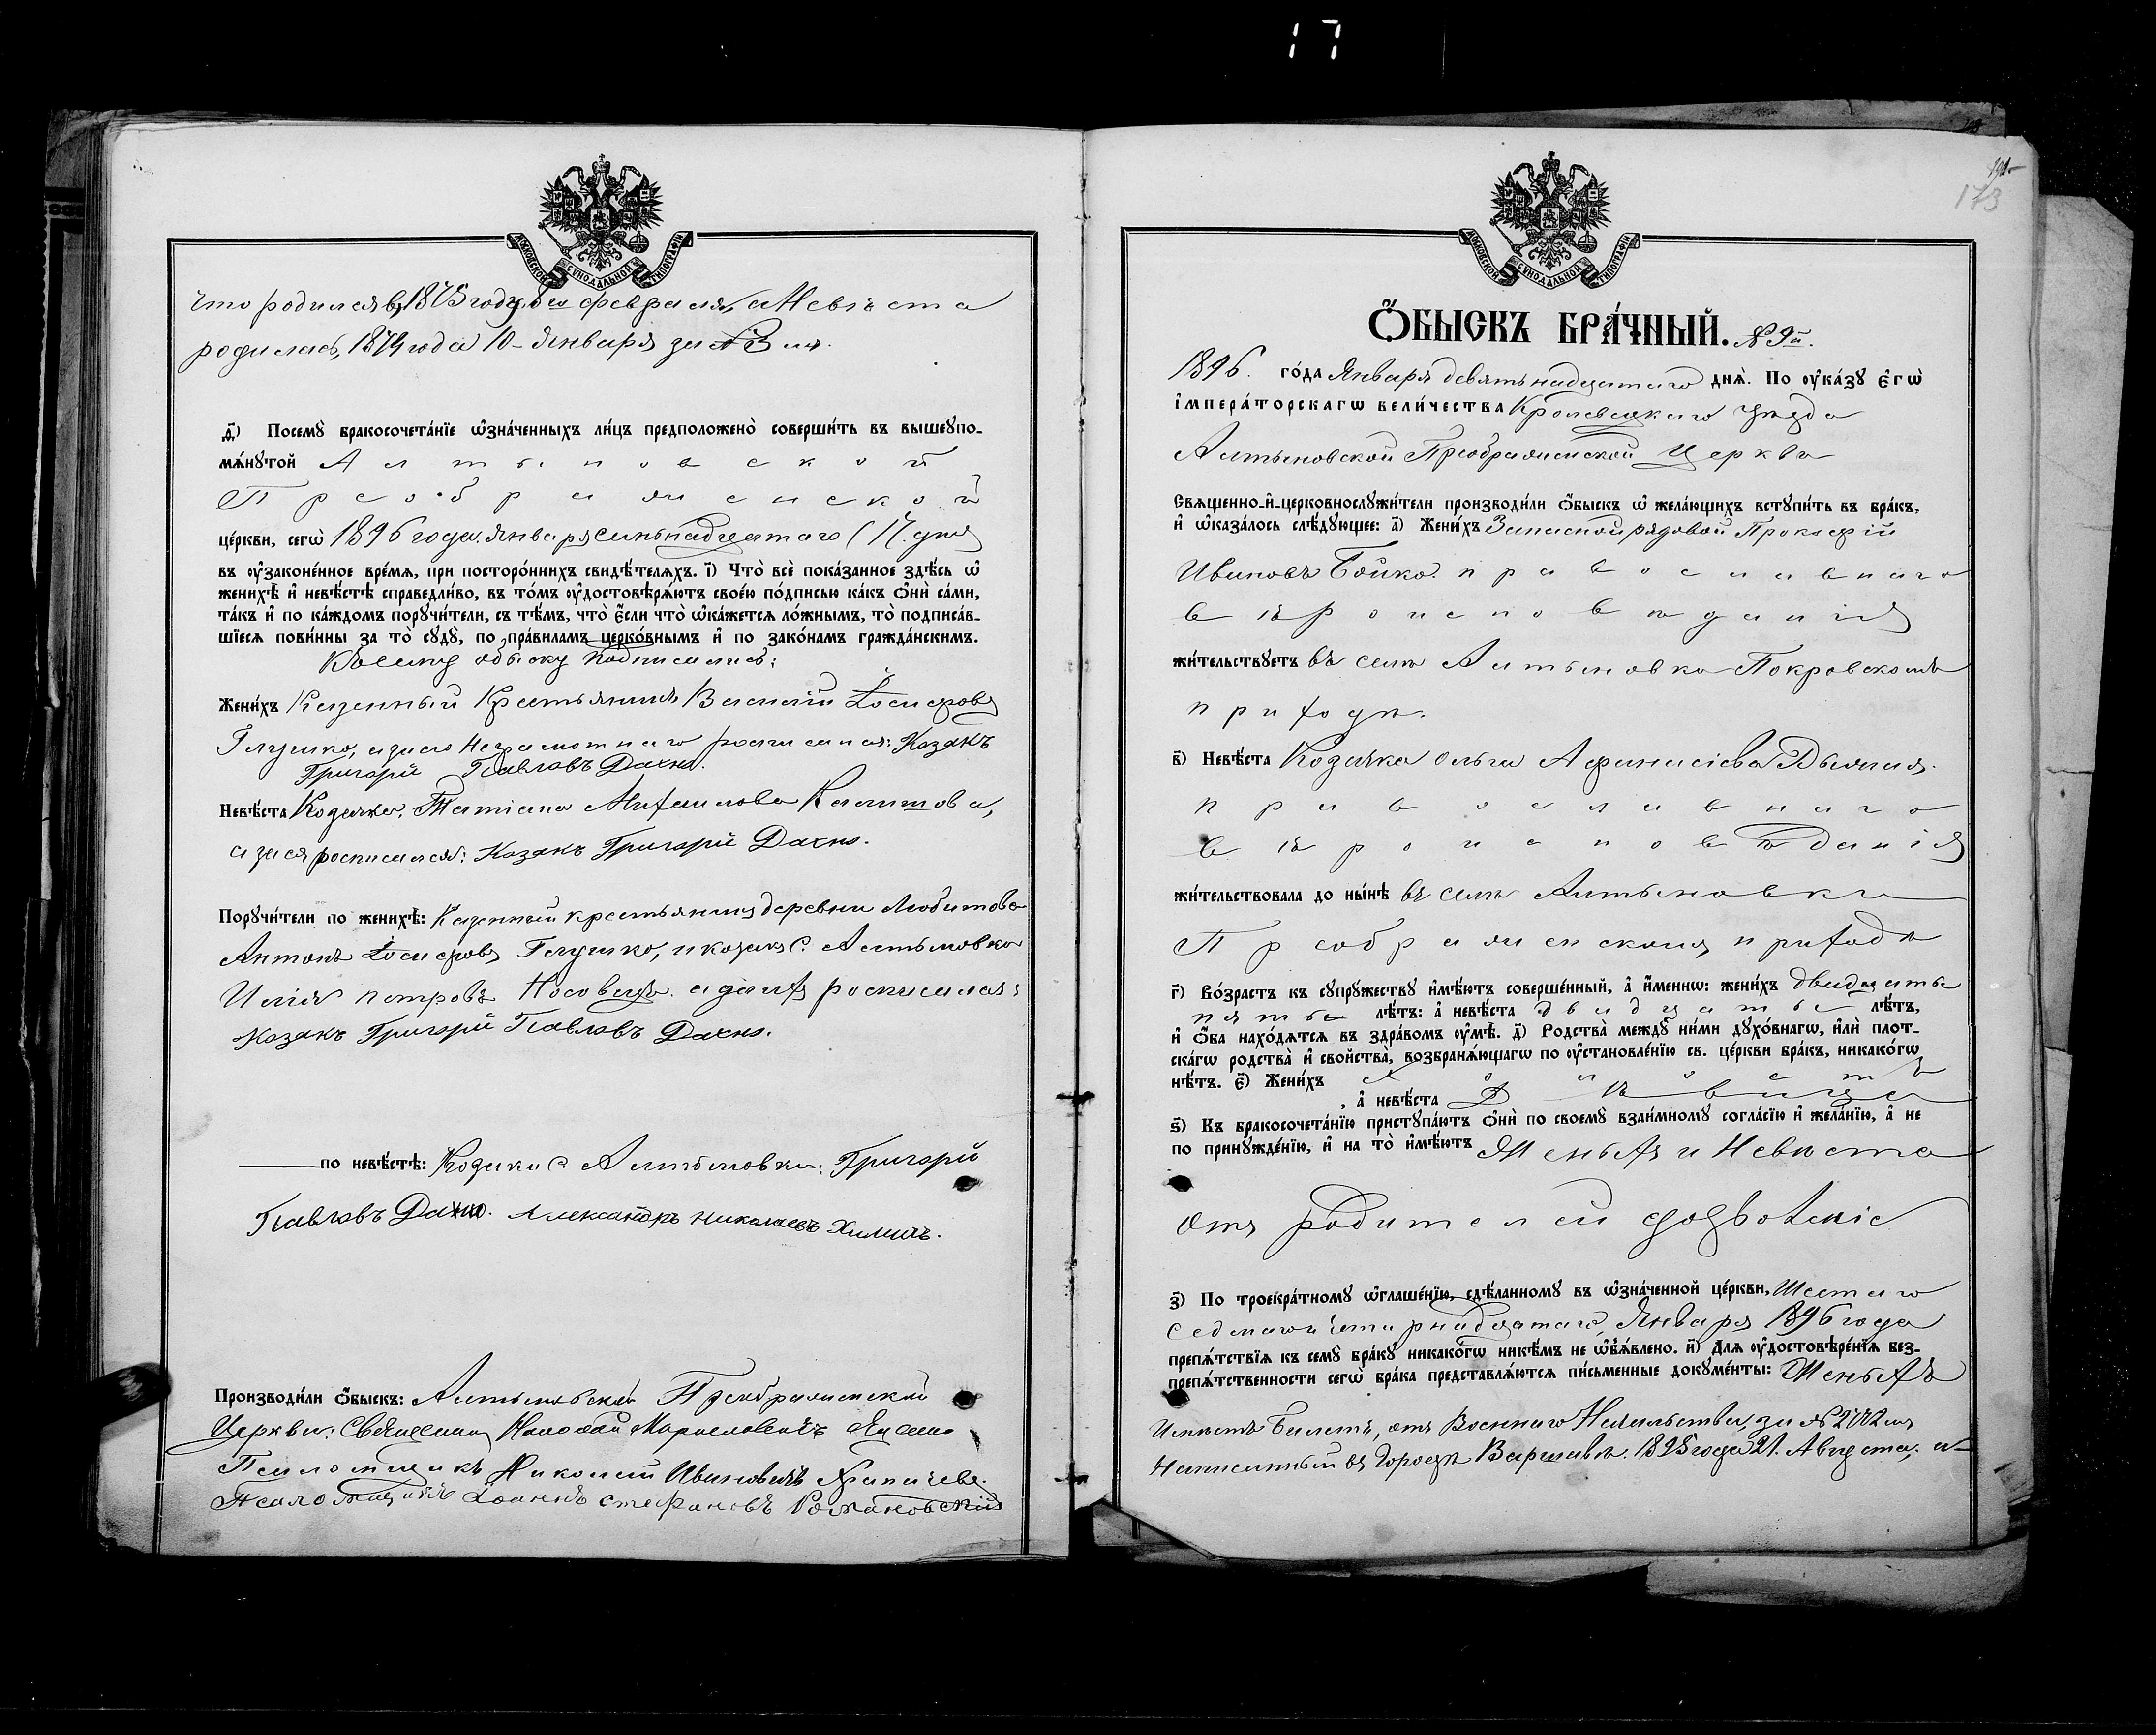 17
МОСКОВСКОЙ СУНОДАЛЬНОЙ ТИПОГРАФІИ
что родился въ 1875 году февраля, а Невѣста
родилась, 1874 года 10 Января за №
д҃і) Посемꙋ̀ бракосочета́нїе ѡ҆зна́ченныхъ ли́цъ предположено̀ соверши́ть въ вышеꙋпо-
мѧ́нꙋтой Алтыновской
Преображенской
це́ркви, сегѡ̀ 1896 года. Января семьнадцатаго (17. дня
въ ᲂу҆законе́нное вре́мѧ, при посторо́ннихъ свидѣ́телѧхъ. і҃) Что̀ всѐ пока́занное здѣ́сь ѡ҆
женихѣ̀ и҆ невѣ́стѣ справедли́во, въ то́мъ ᲂу҆достовѣрѧ́ютъ свое́ю по́дписью ка́къ ѻ҆нѝ са́ми,
та́къ и҆ по ка́ждомъ порꙋчи́тели, съ тѣ́мъ, что̀ є҆́сли что̀ ѡ҆ка́жетсѧ ло́жнымъ, то̀ подписа́в-
шїесѧ пови́нны за то̀ сꙋдꙋ̀, по пра́виламъ церко́внымъ и҆ по зако́намъ гражда́нскимъ.
К сему обыску подписались:
Жени́хъ Казенный Крестьянинъ Василій Іосифовъ
Глушко, а за него Неграмотнаго росписался: Козакъ
Григорій Павловъ Дахно.
Невѣ́ста Козачка, Татіана Михаилова Калитова,
а за ея росписался: Козакъ Григорій Дахно.
Порꙋчи́тели по женихѣ̀: Казенный крестьянинъ деревни Любитова
Антонъ Іосифовъ Глушко, и козакъ с. Алтыновки
Илія Петровъ Носовецъ. а за нихъ росписался:
Козакъ Григорій Павловъ Дахно.
по невѣ́стѣ: Козаки с. Алтыновки: Григорій
Павловъ Дахно. Александръ Николаевъ Химичъ.
Производи́ли ѻ҆́быскъ: Алтыновской Преображенской
Церкви: Священникъ Николай
Псаломщикъ Николай Ивановичъ
Псаломщикъ Іоаннъ Стефановъ Романовскій
173
МОСКОВСКОЙ СУНОДАЛЬНОЙ ТИПОГРАФІИ
Ѻ҆́БЫСКЪ БРА́ЧНЫЙ. № 9й.
1896. го́да Января девятьнадцатаго днѧ̀. По ᲂу҆ка́зꙋ є҆гѡ̀
і҆мпера́торскагѡ вели́чества Кролевецкаго уѣзда
Алтыновской Преображенской Церкви
Свѧщенно-и҆-церковнослꙋжи́тели производи́ли ѻ҆́быскъ ѡ҆ жела́ющихъ встꙋпи́ть въ бра́къ,
и҆ ѡ҆каза́лось слѣ́дꙋющее: а҃) Жени́хъ Запасной рядовой Прокофій
Ивановъ Бойко. православнаго
вѣроисповѣданія
жи́тельствꙋетъ въ селѣ Алтыновкѣ Покровскомъ
приходѣ.
в҃) Невѣ́ста Козачка Ольга Афанасіева
православнаго
вѣроисповѣданія
жи́тельствовала до ны́нѣ въ селѣ Алтыновкѣ
Преображенскомъ приходѣ
г҃) Во́зрастъ къ сꙋпрꙋ́жествꙋ и҆мѣ́ютъ соверше́нный, а҆ и҆́менно: жени́хъ двадцать
пять лѣ́тъ: а҆ невѣ́ста двадцать лѣ́тъ,
и҆ ѻ҆́ба нахо́дѧтсѧ въ здра́вомъ ᲂу҆мѣ̀. д҃) Родства̀ междꙋ̀ ни́ми дꙋхо́внагѡ, и҆лѝ плот-
ска́гѡ родства̀ и҆ сво́йства, возбранѧ́ющагѡ по ᲂу҆становле́нїю св. це́ркви бра́къ, никако́гѡ
нѣ́тъ. є҃) Жени́хъ Холостъ
, а҆ невѣ́ста Дѣвица
ѕ҃) Къ бракосочета́нїю пристꙋпа́ютъ ѻ҆нѝ по своемꙋ̀ взаи́мномꙋ согла́сїю и҆ жела́нїю, а҆ не
по принꙋжде́нїю, и҆ на то̀ и҆мѣ́ютъ Женихъ и Невѣста
отъ родителей дозволеніе
з҃) По троекра́тномꙋ ѡ҆глаше́нїю, сдѣ́ланномꙋ въ ѡ҆зна́ченной це́ркви, Шестаго
седмаго и четырнадцатаго, Января 1896 года
препѧ́тствїѧ къ семꙋ̀ бра́кꙋ никако́гѡ никѣ́мъ не ѡ҆б̾ѧ́влено. и҃) Длѧ ᲂу҆достовѣре́нїѧ без-
препѧ́тственности сегѡ̀ бра́ка представлѧ́ютсѧ пи́сьменные докꙋме́нты: Женихъ
Имѣетъ Билетъ, отъ Военнаго Начальства, за №
Написанный въ городѣ Варшавѣ. 1895 года 21. Августа, а